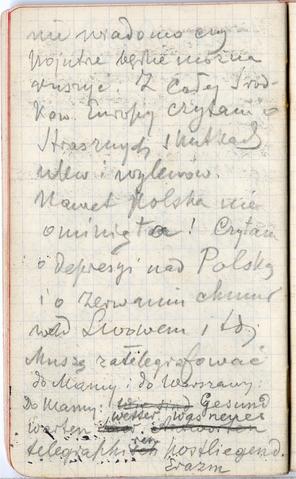 nie wiadomo czy
pojutrze będzie można
ruszyć. Z całej Środ-
kow. Europy czytam o
strasznych skutkach
ulew i wylewów.
Nawet Polska nie
ominięta! Czytam
o depresyi nad Polską
i o zerwaniu chmur
nad Lwowem i t d.
Muszę zatelegrafować
do Mamy i do Warszawy:
Do Mamy: Gesund
warten wetter
telegraphi postliegend.
Erazm